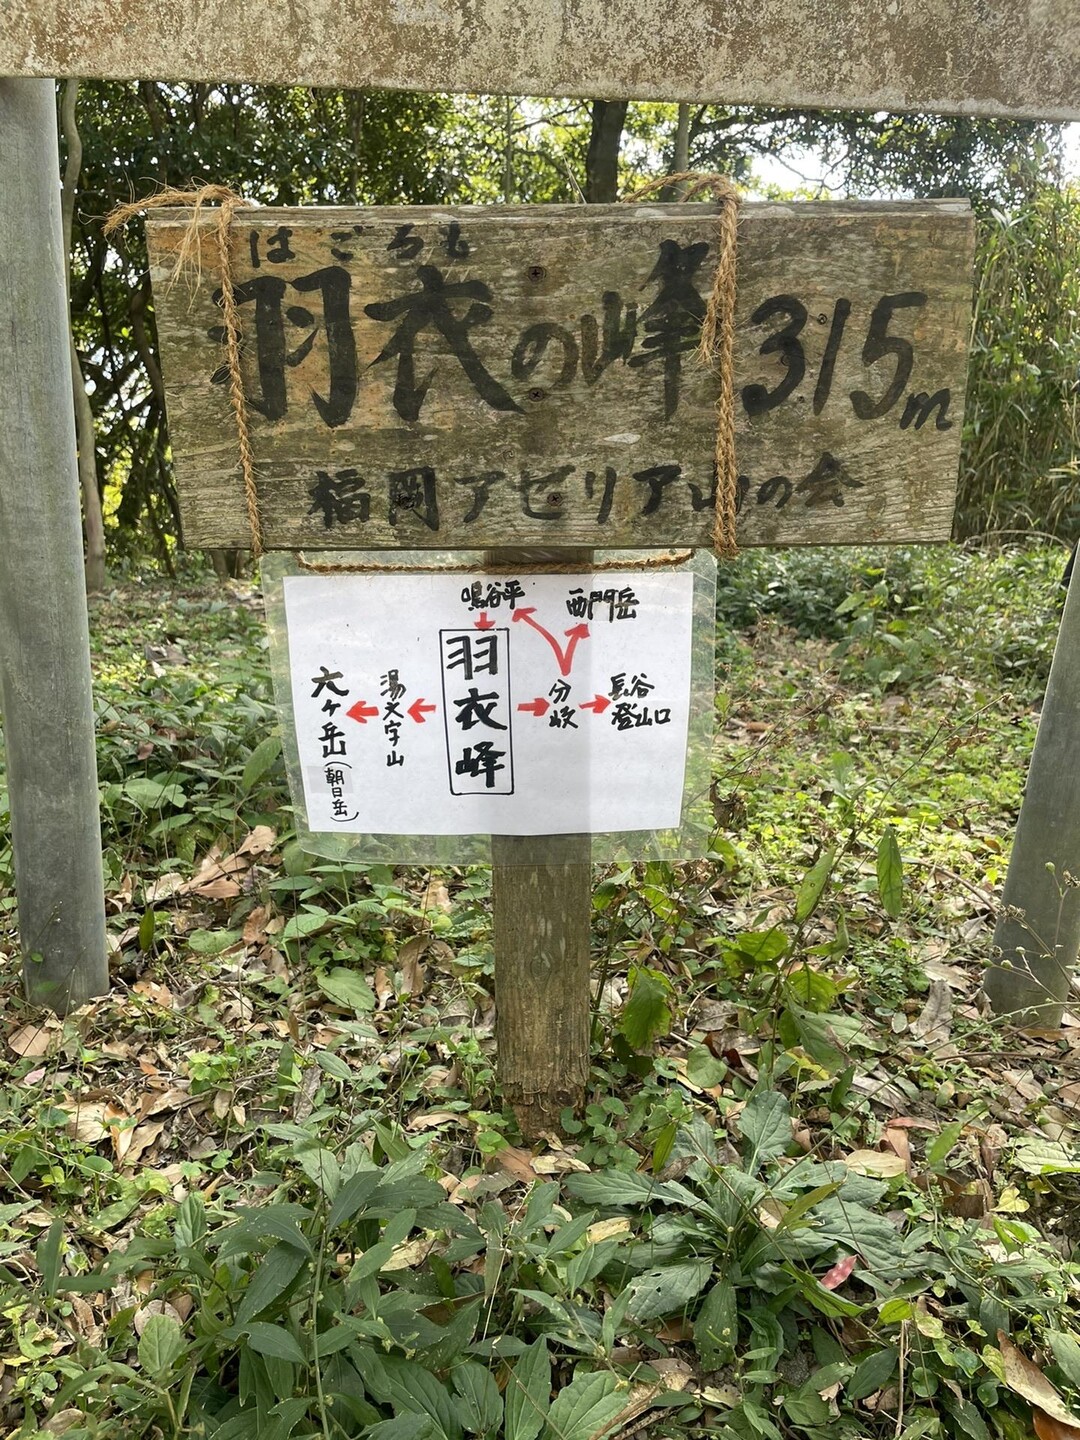 はごろも
羽衣の峰 315m
福岡アゼリア山の会
鳴谷平
西門岳
羽衣峰
分岐
長谷
登山口
湯文字山
六ヶ岳(朝日岳)